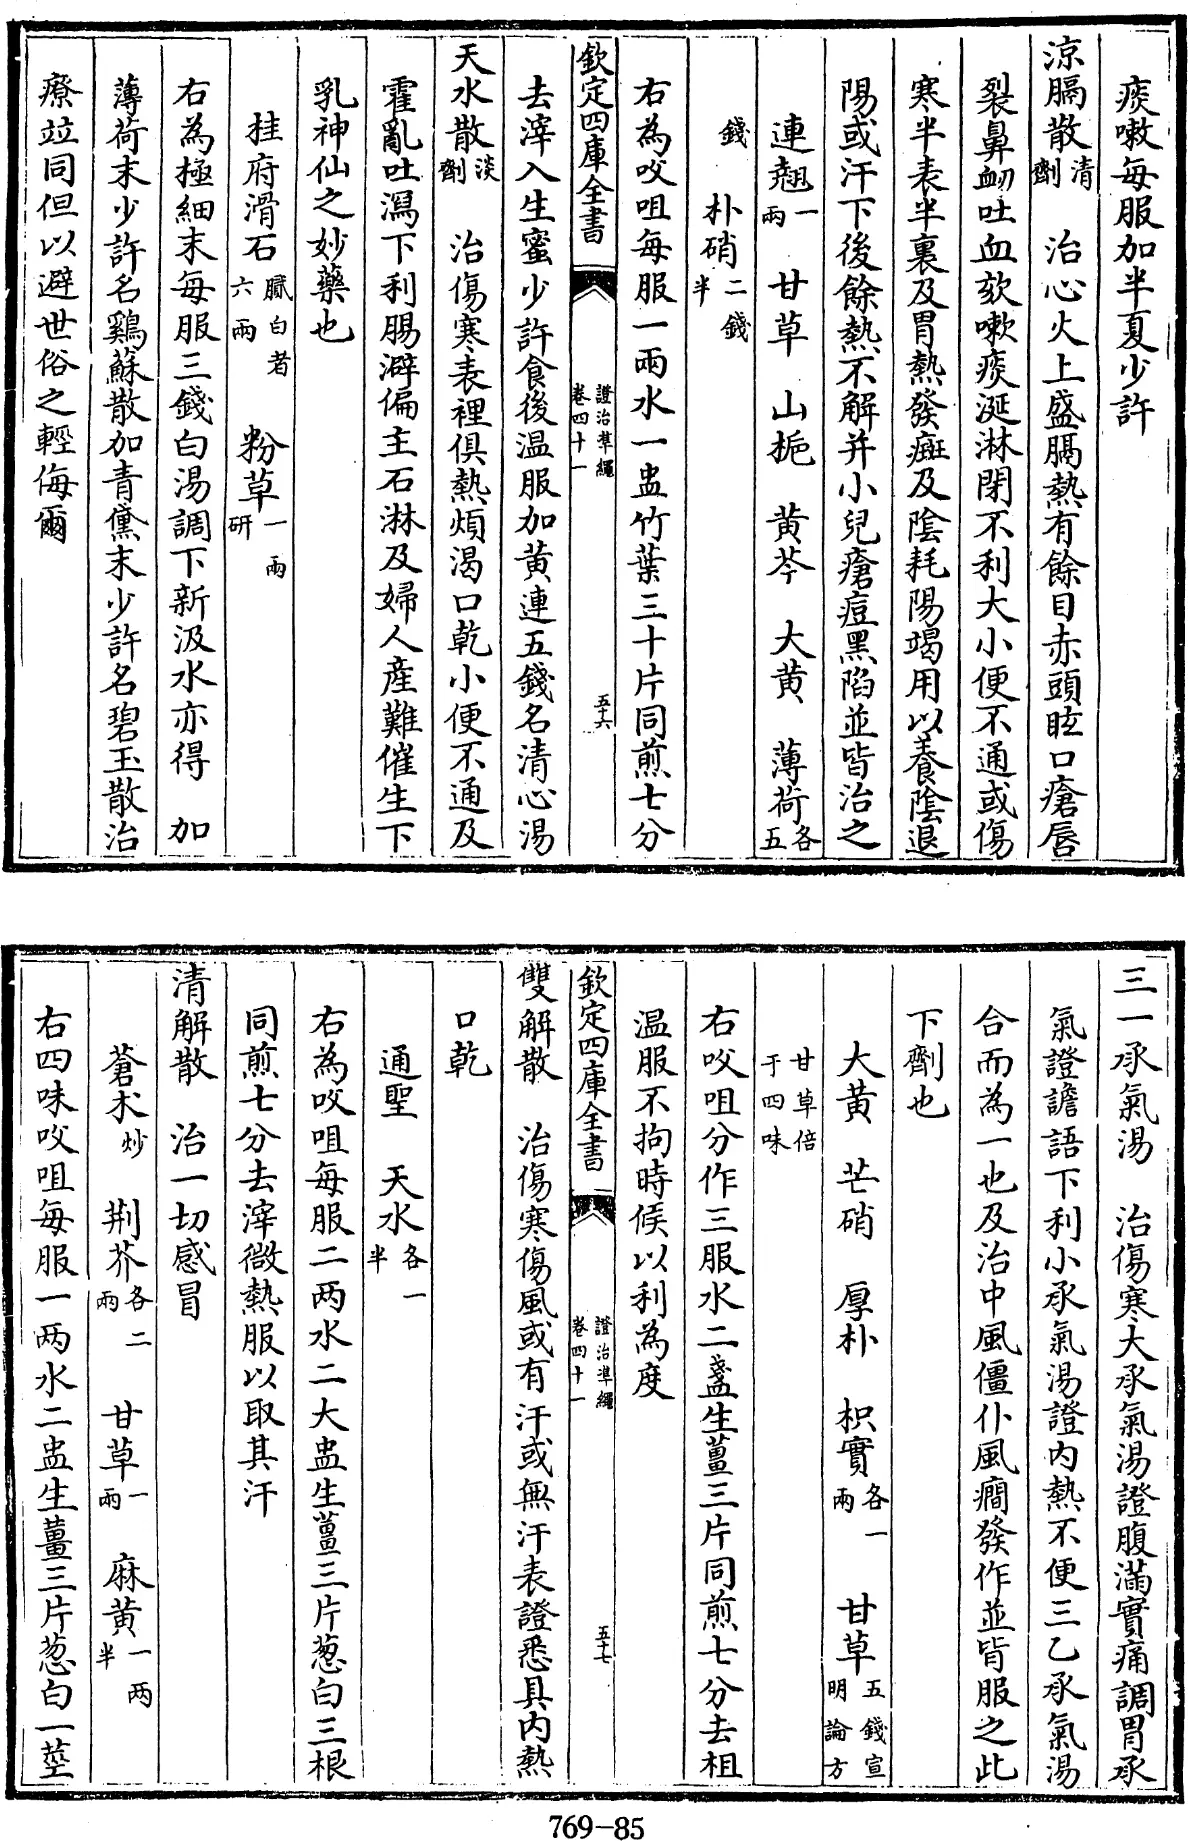 痰嗽每服加半夏少許
涼膈散清劑　治心火上盛膈熱有餘目赤頭眩口瘡唇
裂鼻衂吐血欬嗽痰涎淋閉不利大小便不通或傷
寒半表半裏及胃熱發斑及陰耗陽竭用以養陰退
陽或汗下後餘熱不解并小兒瘡痘黑陷並皆治之
連翹一兩　甘草　山梔　黄芩　大黄　薄荷各五
錢　朴硝二錢半
右為㕮咀每服一兩水一盅竹葉三十片同煎七分
欽定四庫全書　證治準繩卷四十一　五十六
去滓入生蜜少許食後温服加黄連五錢名清心湯
天水散淡劑　治傷寒表裡俱熱煩渴口乾小便不通及
霍亂吐瀉下利腸澼偏主石淋及婦人產難催生下
乳神仙之妙藥也
桂府滑石膩白者六兩　粉草一兩研
右為極細末每服三錢白湯調下新汲水亦得　加
薄荷末少許名鷄蘇散加青黛末少許名碧玉散治
療竝同但以避世俗之輕侮爾
三一承氣湯　治傷寒大承氣湯證腹滿實痛調胃承
氣證譫語下利小承氣湯證内熱不便三乙承氣湯
合而為一也及治中風僵仆風癎發作並皆服之此
下劑也
大黄　芒硝　厚朴　枳實各一兩　甘草五錢宣明論方
甘草倍于四味
右㕮咀分作三服水二盞生薑三片同煎七分去柤
温服不拘時候以利為度
欽定四庫全書　證治準繩卷四十一　五十七
雙解散　治傷寒傷風或有汗或無汗表證悉具内熱
口乾
通聖　天水各一半
右為㕮咀每服二两水二大盅生薑三片葱白三根
同煎七分去滓微熱服以取其汗
清解散　治一切感冒
蒼朮炒　荆芥各二兩　甘草一兩　麻黄一两半
右四味㕮咀每服一两水二盅生薑三片葱白一莖
769-85